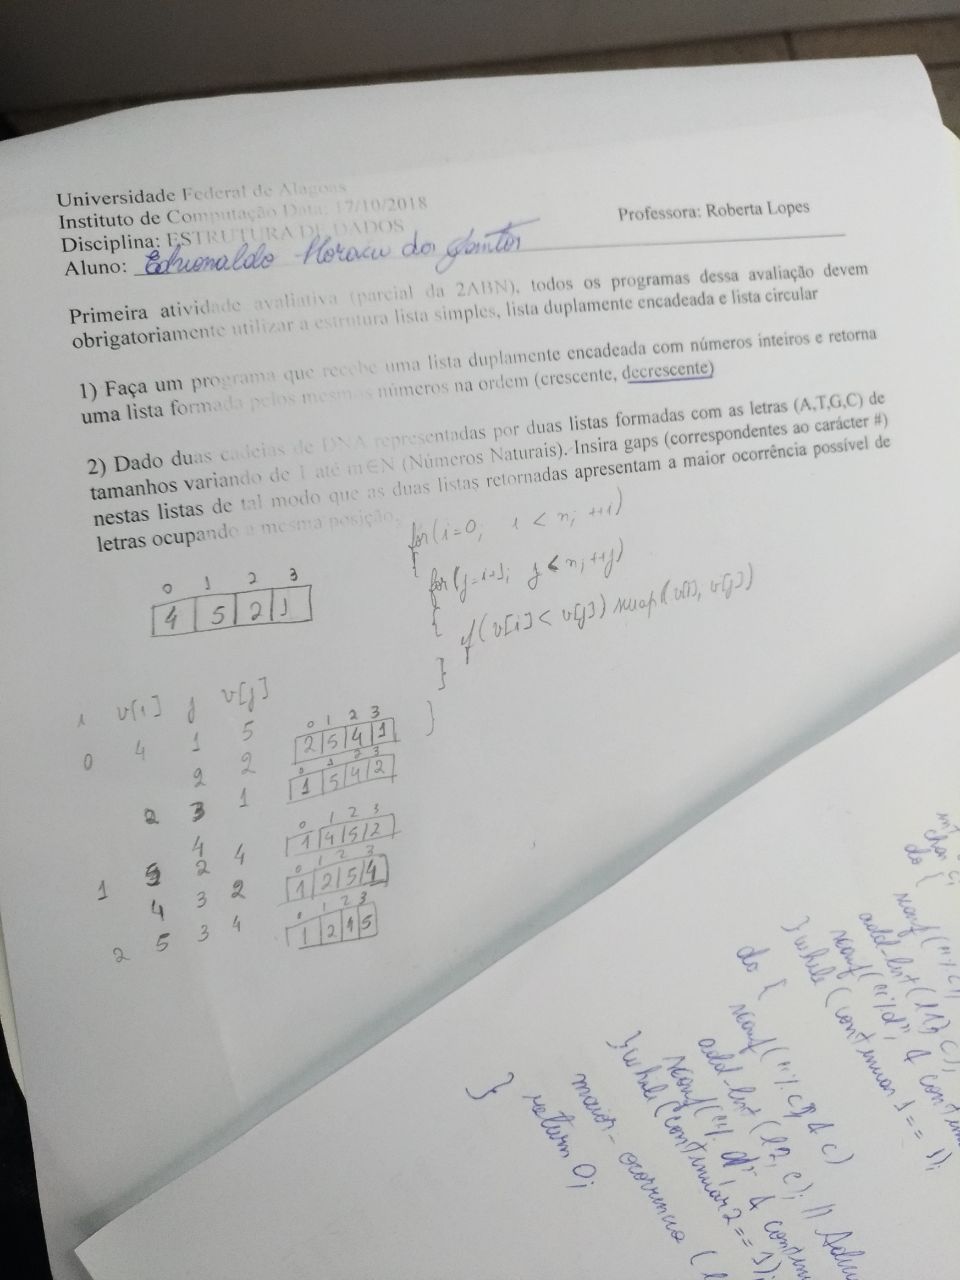 Universidade Federal de Alagoas
Instituto de Computação Data: 17/10/2018
Professora: Roberta Lopes
Disciplina: ESTRUTURA DE DADOS
Aluno: dos Santos
Primeira atividade avaliativa (parcial da 2ABN), todos os programas dessa avaliação devem
obrigatoriamente utilizar a estrutura lista simples, lista duplamente encadeada e lista circular
1) Faça um programa que recebe uma lista duplamente encadeada com números inteiros e retorna
uma lista formada pelos mesmos números na ordem (crescente, decrescente)
2) Dado duas cadeias de DNA representadas por duas listas formadas com as letras (A,T,G,C) de
tamanhos variando de 1 até m∈N (Números Naturais). Insira gaps (correspondentes ao carácter #)
nestas listas de tal modo que as duas listas retornadas apresentam a maior ocorrência possível de
letras ocupando a mesma posição.
for(i=0; i < n; ++i)
{
for(j=i+1; j < n; ++j)
{
if(v[i] < v[j]) swap(v[i], v[j])
}
}
0 1 2 3
4 5 2 1
i v[i] j v[j]
0 4 1 5
2 2
2 3 1
4
1 5 2 4
4 3 2
2 5 3 4
0 1 2 3
2 5 4 1
0 1 2 3
1 5 4 2
0 1 2 3
1 4 5 2
0 1 2 3
1 2 5 4
0 1 2 3
1 2 4 5
do {
scanf("%c",
add-list(l1, c);
scanf("%d", &
}while(continuar1 == 1);
do {
scanf("%c", &c)
add-list(l2, c); //
scanf("%d", &
}while(continuar2 == 1);
maior-ocorrencia (
return 0;
}